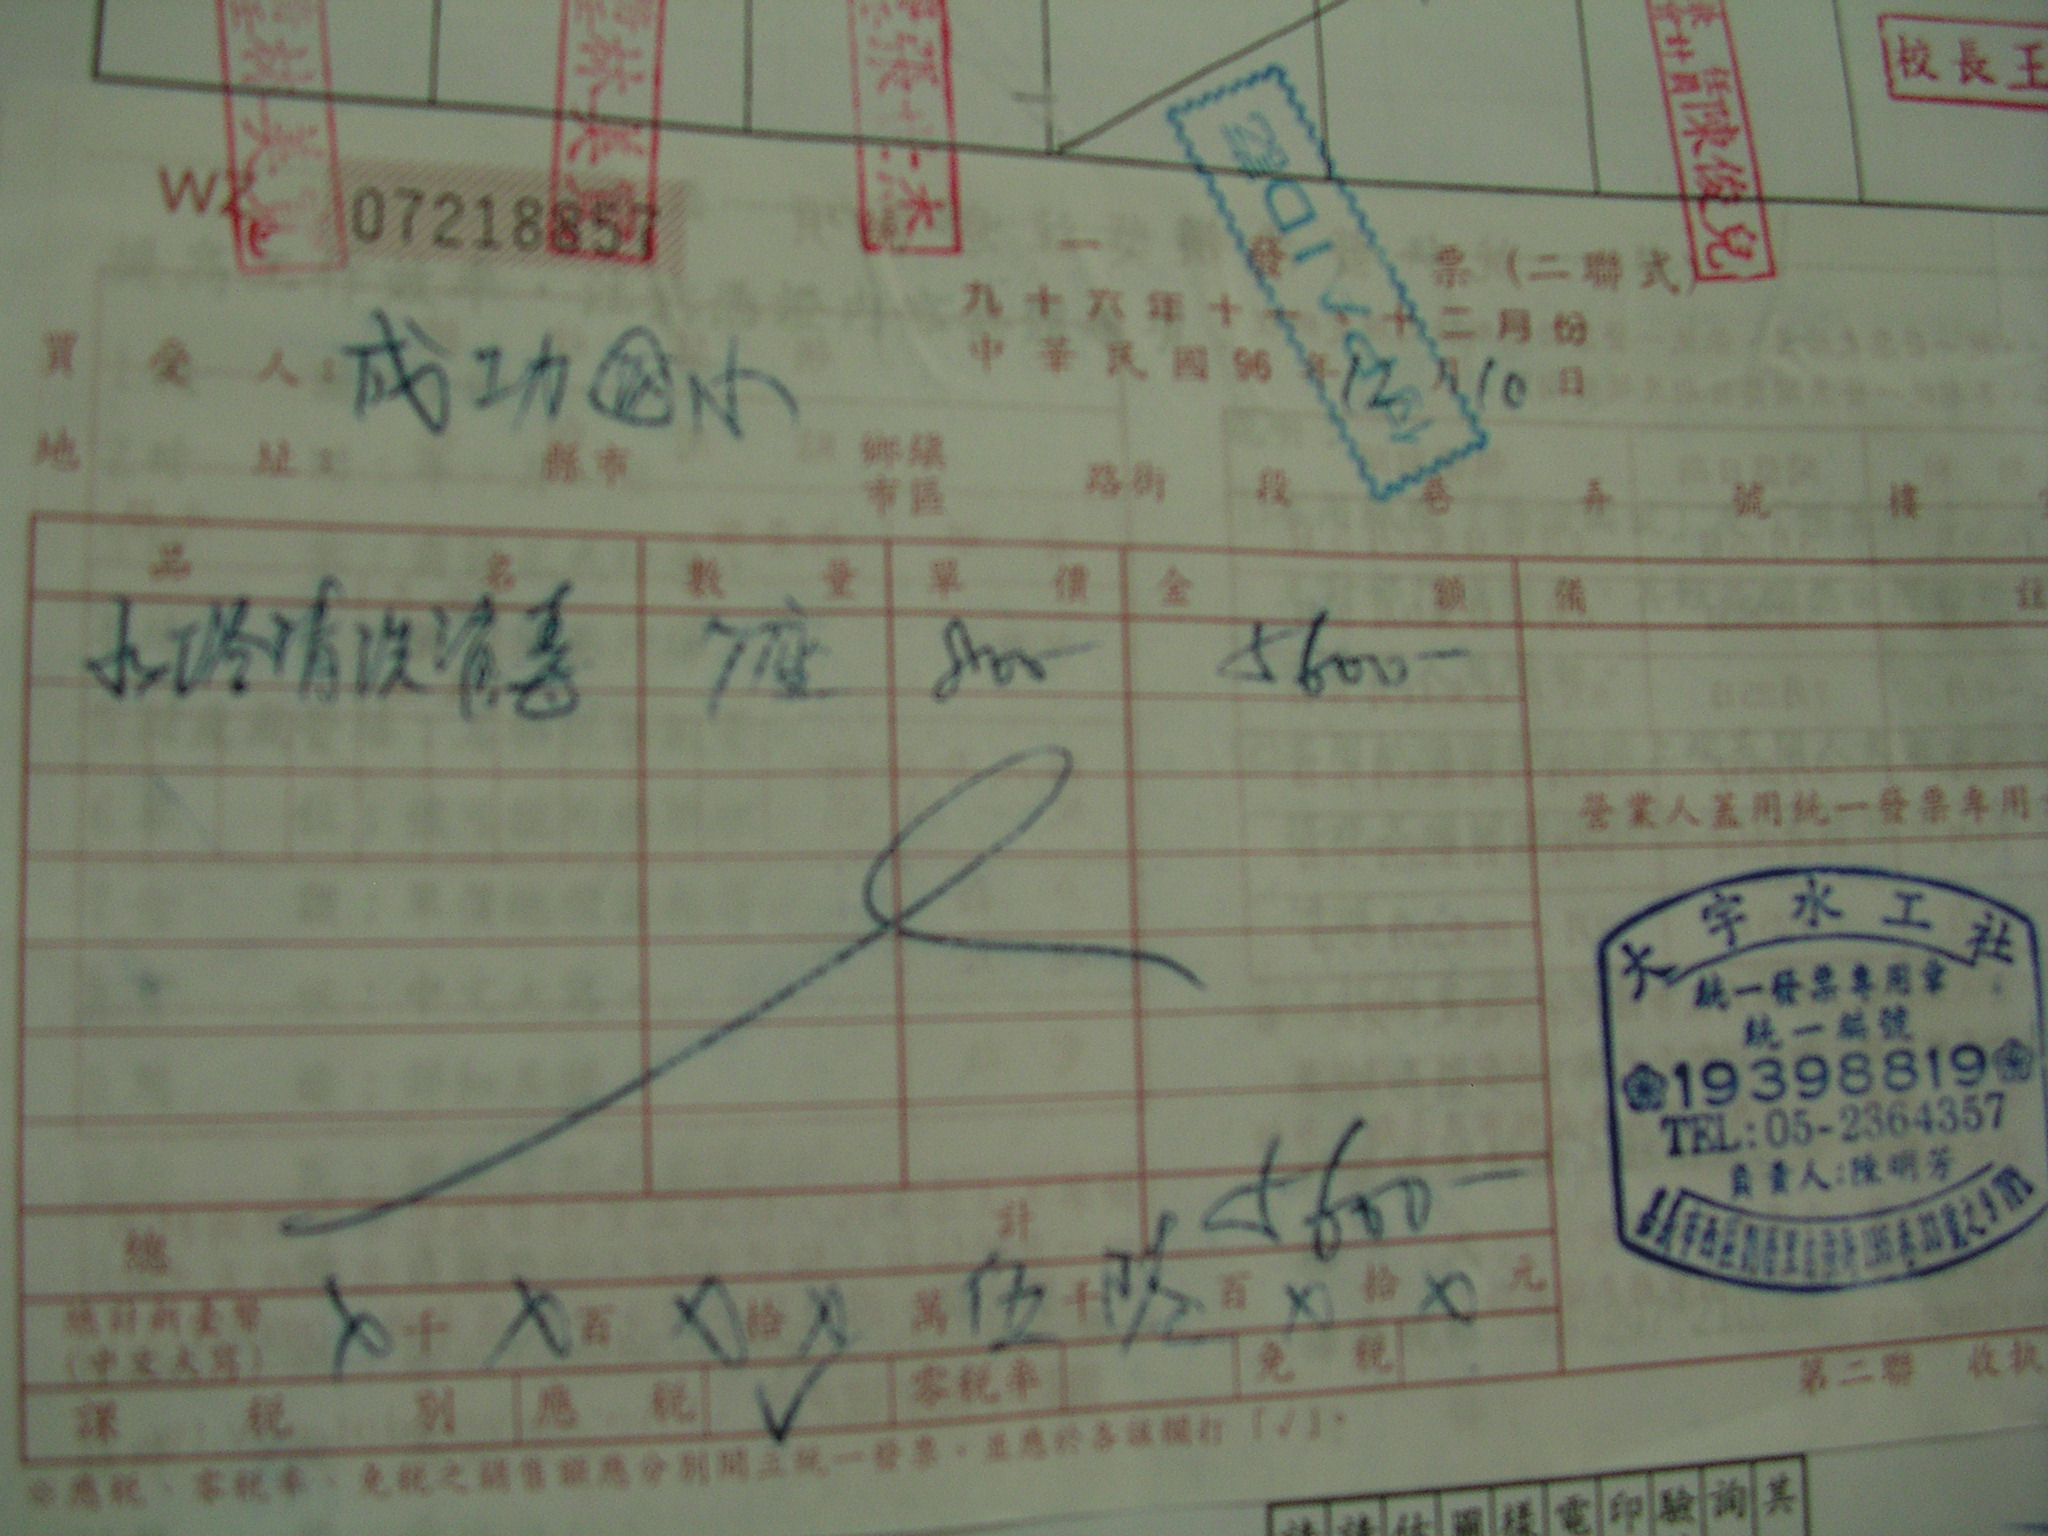 校長王
陳俊兒
07218857
一發票(二聯式)
九十六年十一、十二月份
中華民國96年12月10日
買受人：成功國小
地址 縣市 鄉鎮市區 路街 段 巷 弄 號 樓
品名 數量 單價 金額 備註
水塔清洗消毒 7座 800- 5600-
營業人蓋用統一發票專用
大宇水工社
統一發票專用章
統一編號
19398819
TEL:05-2364357
負責人:陳明芳
總計 5600-
總計新臺幣
(中文大寫)
X千X百X拾X萬伍千陸百X拾X元
課稅別 應稅 ✓ 零稅率 免稅
第二聯 收執
※應稅、零稅率、免稅之銷售額應分別開立統一發票，並應於各該欄打「√」。
請請估圖樣電印驗詢其